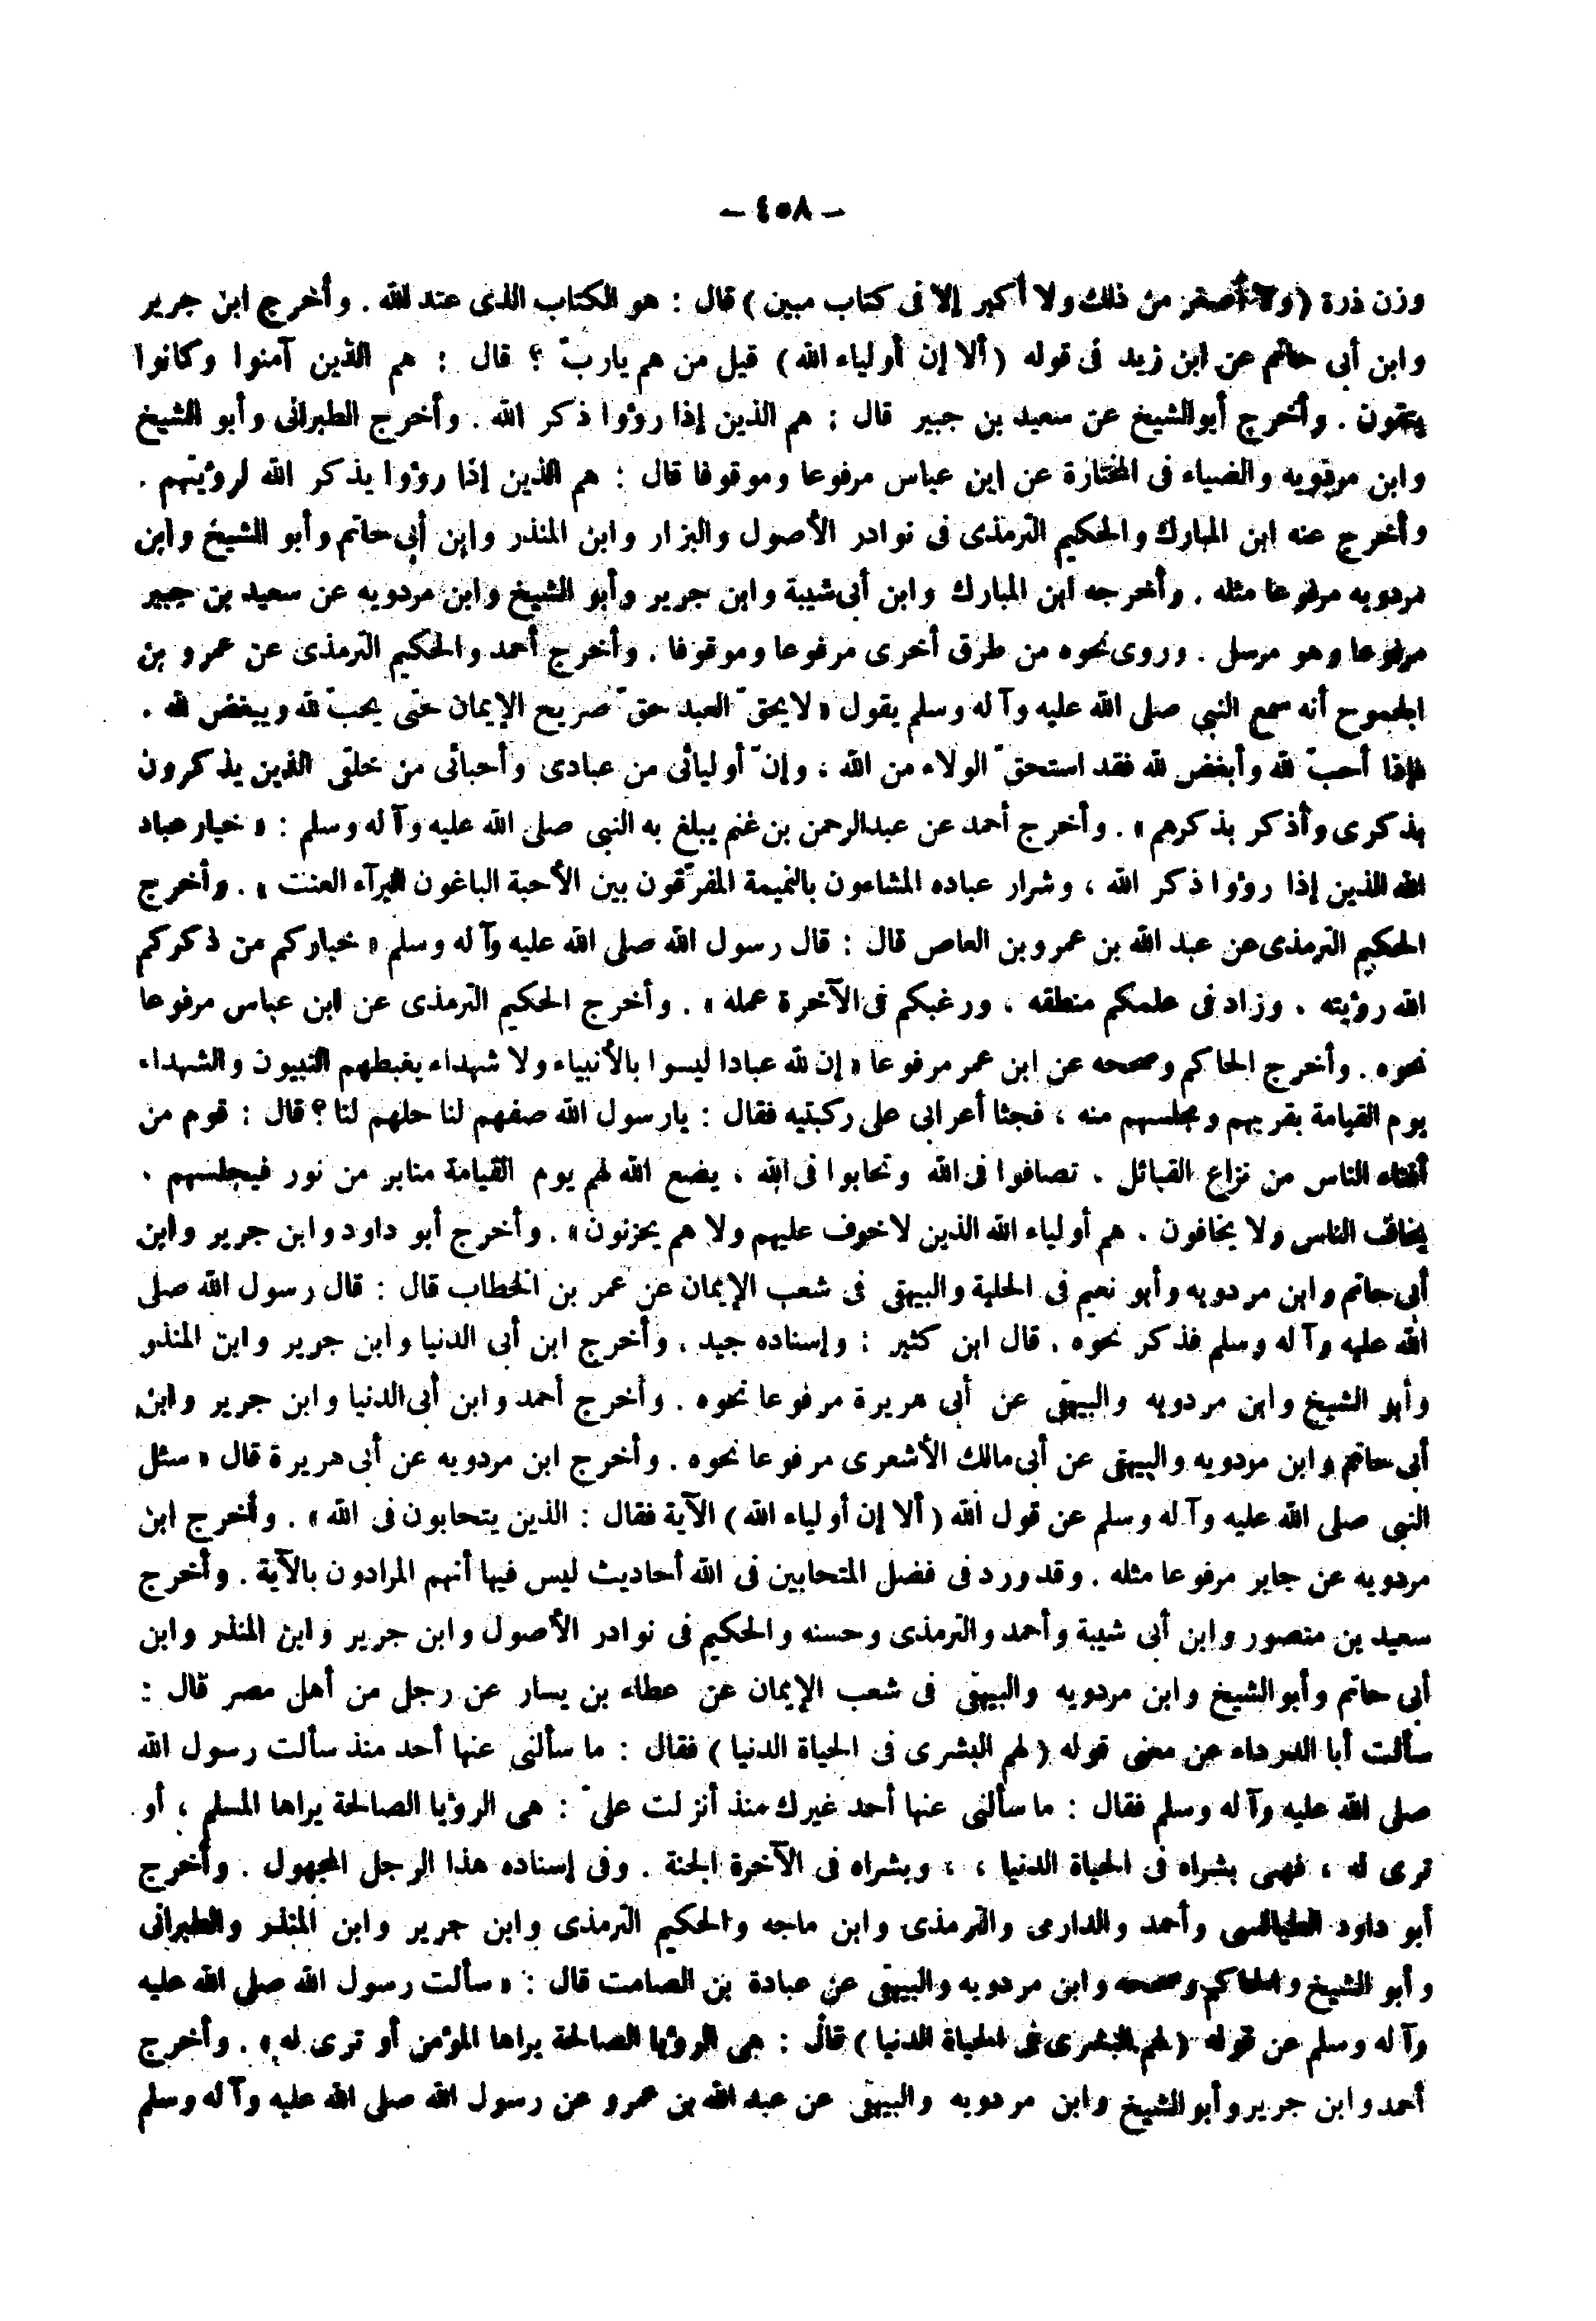 – ٤٥٨ –
وزن ذرة (ولا أصغر من ذلك ولا أكبر إلا فى كتاب مبين) قال : هو الكتاب الذى عند الله . وأخرج ابن جرير
وابن أبى حاتم عن ابن زيد فى قوله (ألا إن أولياء الله) قيل من هم ياربّ ؟ قال : هم الذين آمنوا وكانوا
يتقون . وأخرج أبو الشيخ عن سعيد بن جبير قال : هم الذين إذا رؤوا ذكر الله . وأخرج الطبرانى وأبو الشيخ
وابن مردويه والضياء فى المختارة عن ابن عباس مرفوعا وموقوفا قال : هم الذين إذا رؤوا يذكر الله لرؤيتهم .
وأخرج عنه ابن المبارك والحكيم الترمذى فى نوادر الأصول والبزار وابن المنذر وابن أبى حاتم وأبو الشيخ وابن
مردويه مرفوعا مثله . وأخرجه ابن المبارك وابن أبى شيبة وابن جرير وأبو الشيخ وابن مردويه عن سعيد بن جبير
مرفوعا وهو مرسل . وروى نحوه من طرق أخرى مرفوعا وموقوفا . وأخرج أحمد والحكيم الترمذى عن عمرو بن
الجموح أنه سمع النبى صلى الله عليه وآله وسلم يقول «لا يحقّ العبد حقّ صريح الإيمان حتى يحبّ لله ويبغض لله .
فإذا أحبّ لله وأبغض لله فقد استحقّ الولاء من الله ، وإنّ أوليائى من عبادى وأحبائى من خلقى الذين يذكرون
بذكرى وأذكر بذكرهم» . وأخرج أحمد عن عبدالرحمن بن غنم يبلغ به النبى صلى الله عليه وآله وسلم : «خيار عباد
الله الذين إذا رؤوا ذكر الله ، وشرار عباده المشاءون بالنميمة المفرّقون بين الأحبة الباغون للبرآء العنت» . وأخرج
الحكيم الترمذى عن عبد الله بن عمرو بن العاص قال : قال رسول الله صلى الله عليه وآله وسلم «خياركم من ذكركم
الله رؤيته ، وزاد فى علمكم منطقه ، ورغبكم فى الآخرة عمله» . وأخرج الحكيم الترمذى عن ابن عباس مرفوعا
نحوه . وأخرج الحاكم وصححه عن ابن عمر مرفوعا «إن لله عبادا ليسوا بالأنبياء ولا شهداء يغبطهم النبيون والشهداء
يوم القيامة بقربهم ومجلسهم منه ، فجثا أعرابى على ركبتيه فقال : يا رسول الله صفهم لنا حلهم لنا ؟ قال : قوم من
أفناء الناس من نزاع القبائل ، تصافوا فى الله وتحابوا فى الله ، يضع الله لهم يوم القيامة منابر من نور فيجلسهم ،
يخاف الناس ولا يخافون ، هم أولياء الله الذين لا خوف عليهم ولا هم يحزنون» . وأخرج أبو داود وابن جرير وابن
أبى حاتم وابن مردويه وأبو نعيم فى الحلية والبيهقى فى شعب الإيمان عن عمر بن الخطاب قال : قال رسول الله صلى
الله عليه وآله وسلم فذكر نحوه . قال ابن كثير : وإسناده جيد . وأخرج ابن أبى الدنيا وابن جرير وابن المنذر
وأبو الشيخ وابن مردويه والبيهقى عن أبى هريرة مرفوعا نحوه . وأخرج أحمد وابن أبى الدنيا وابن جرير وابن
أبى حاتم وابن مردويه والبيهقى عن أبى مالك الأشعرى مرفوعا نحوه . وأخرج ابن مردويه عن أبى هريرة قال «سئل
النبى صلى الله عليه وآله وسلم عن قول الله (ألا إن أولياء الله) الآية فقال : الذين يتحابون فى الله» . وأخرج ابن
مردويه عن جابر مرفوعا مثله . وقد ورد فى فضل المتحابين فى الله أحاديث ليس فيها أنهم المرادون بالآية . وأخرج
سعيد بن منصور وابن أبى شيبة وأحمد والترمذى وحسنه والحكيم فى نوادر الأصول وابن جرير وابن المنذر وابن
أبى حاتم وأبو الشيخ وابن مردويه والبيهقى فى شعب الإيمان عن عطاء بن يسار عن رجل من أهل مصر قال :
سألت أبا الدرداء عن معنى قوله (لهم البشرى فى الحياة الدنيا) فقال : ما سألنى عنها أحد منذ سألت رسول الله
صلى الله عليه وآله وسلم فقال : ما سألنى عنها أحد غيرك منذ أنزلت علىّ : هى الرؤيا الصالحة يراها المسلم ، أو
ترى له ، فهى بشراه فى الحياة الدنيا ، ، وبشراه فى الآخرة الجنة . وفى إسناده هذا الرجل المجهول . وأخرج
أبو داود الطيالسى وأحمد والدارمى والترمذى وابن ماجه والحكيم الترمذى وابن جرير وابن المنذر والطبرانى
وأبو الشيخ والحاكم وصححه وابن مردويه والبيهقى عن عبادة بن الصامت قال : «سألت رسول الله صلى الله عليه
وآله وسلم عن قوله (لهم البشرى فى الحياة الدنيا) قال : هى الرؤيا الصالحة يراها المؤمن أو ترى له» . وأخرج
أحمد وابن جرير وأبو الشيخ وابن مردويه والبيهقى عن عبد الله بن عمرو عن رسول الله صلى الله عليه وآله وسلم